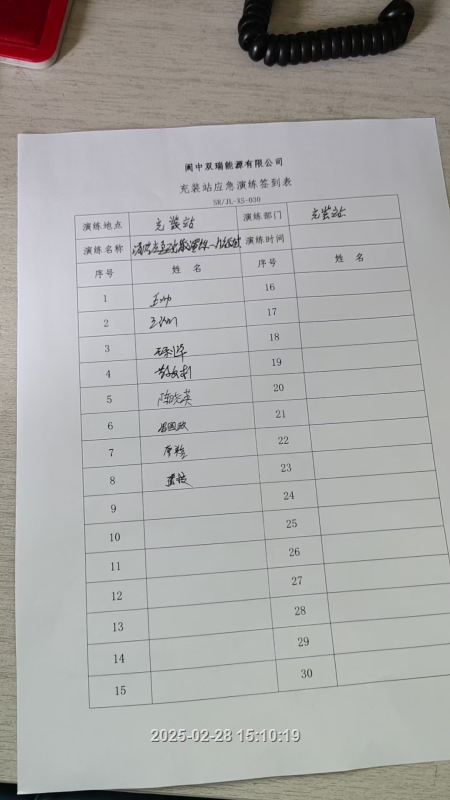 阆中双瑞能源有限公司
充装站应急演练签到表
SR/JL-X5-030
演练地点 充装站 演练部门 充装站
演练名称 演练时间
序号 姓 名 序号 姓 名
1 16
2 17
3 18
4 19
5 陈晓英 20
6 21
7 22
8 23
9 24
10 25
11 26
12 27
13 28
14 29
15 30
2025-02-28 15:10:19